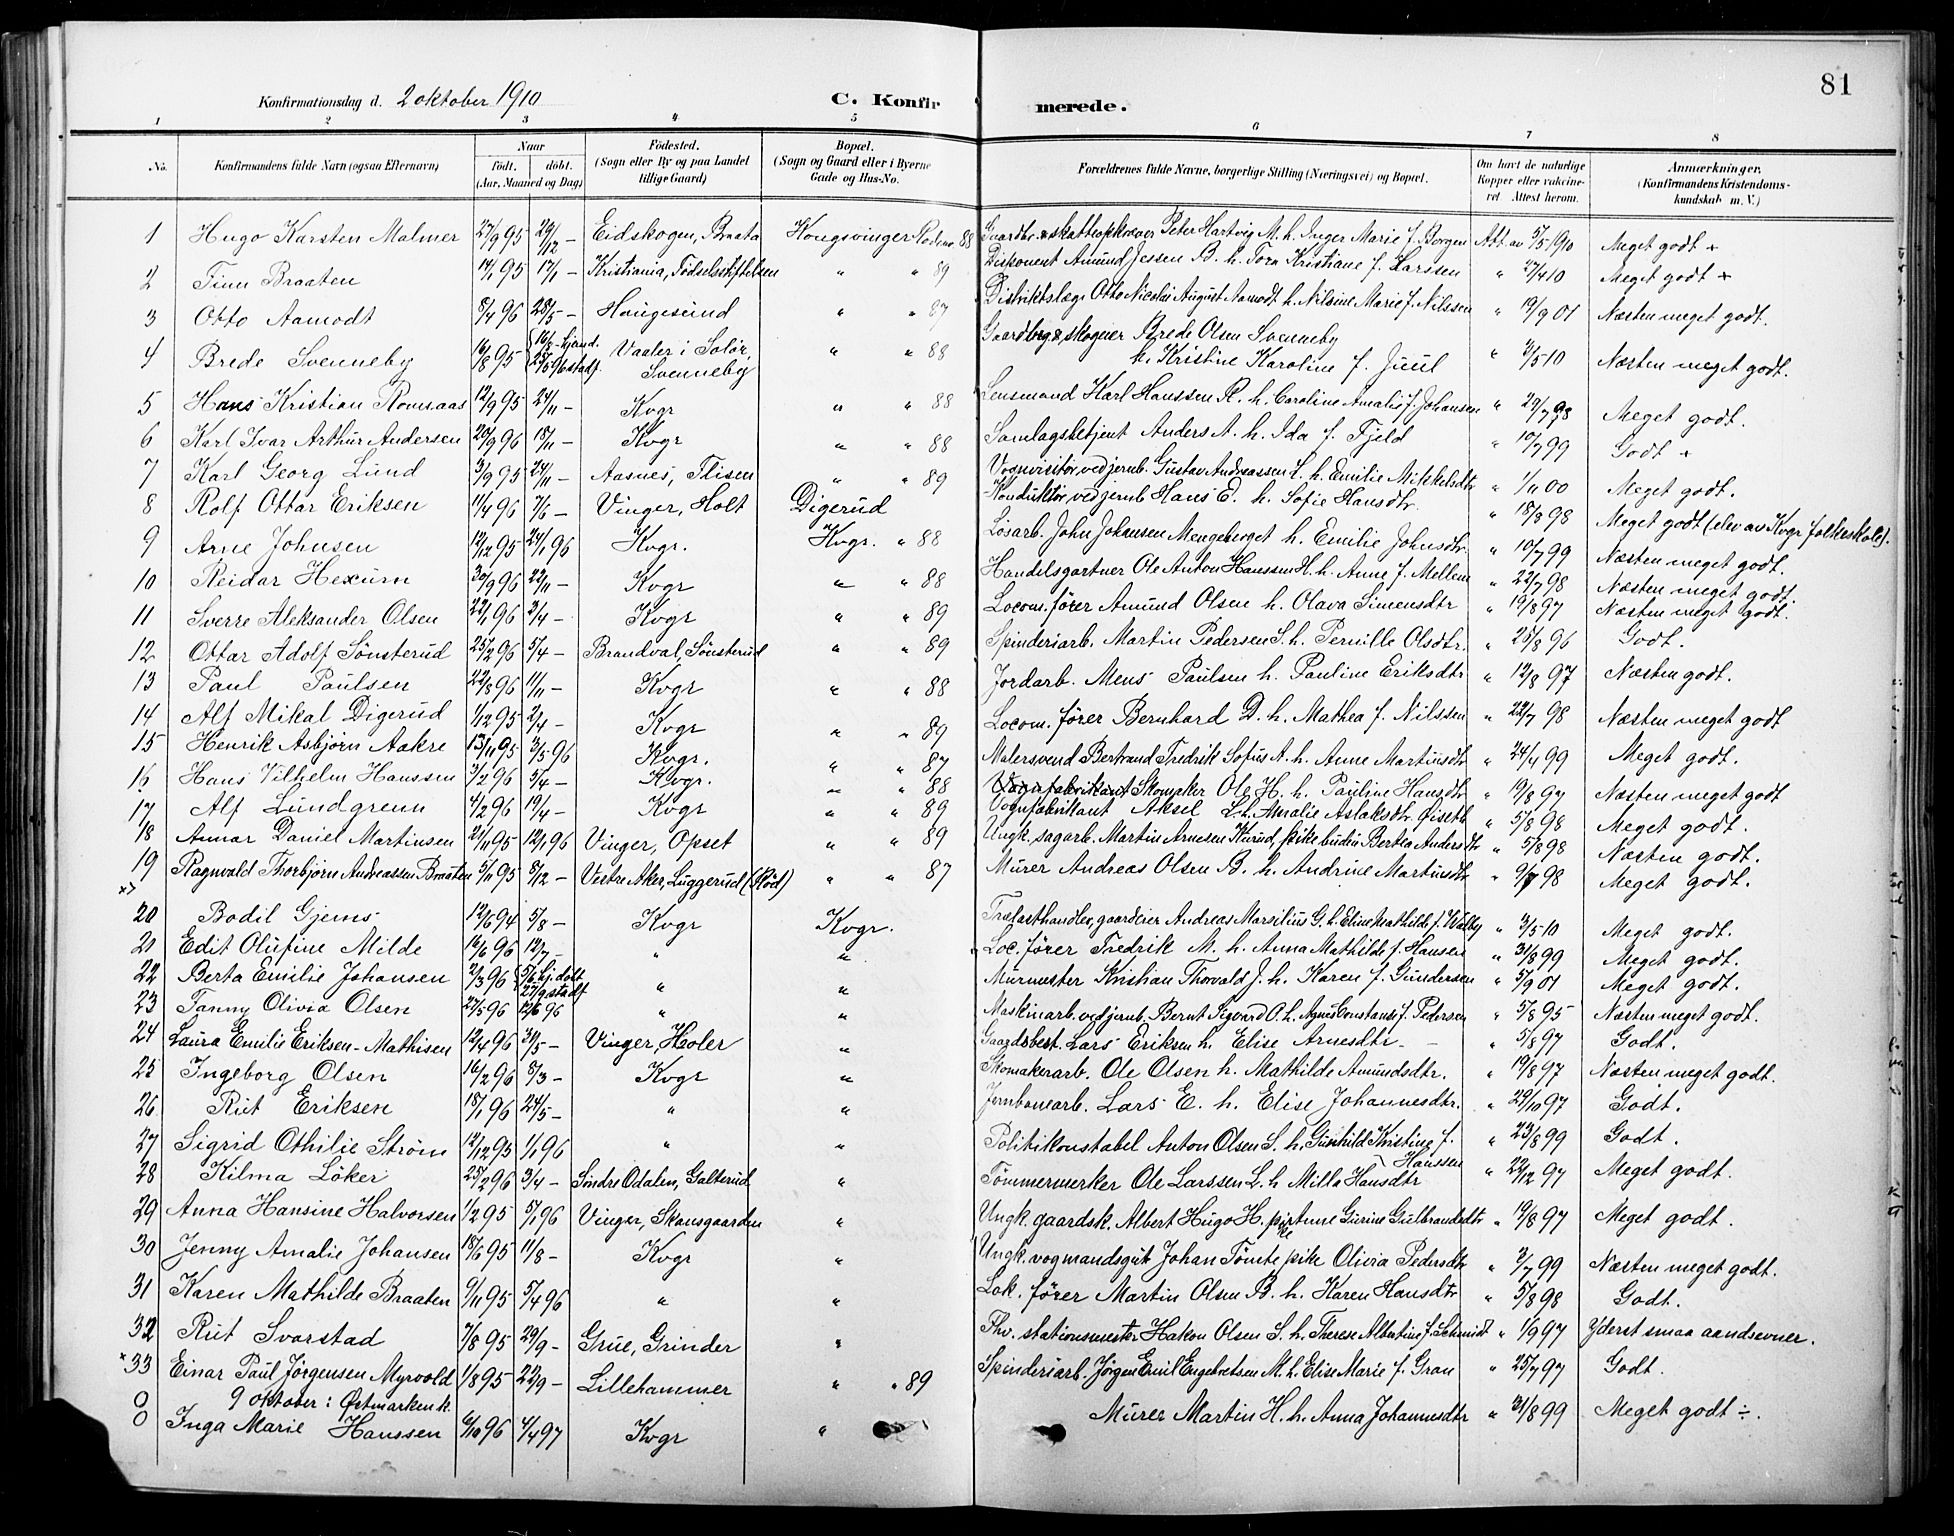 81
Konfirmationsdag d. 2 oktober 1910 C. Konfirmerede.
1 2 3 4 5 6 7 8
No. Konfirmandens fulde Navn (ogsaa Efternavn) Naar födt. döbt. (Aar, Maaned og Dag) Födested. (Sogn eller By og paa Landet tillige Gaard) Bopæl. (Sogn og Gaard eller i Byerne Gade og Hus-No. Forældrenes fulde Navne, borgerlige Stilling (Næringsvei) og Bopæl. Om havt de naturlige Kopper eller vakcineret Attest herom. Anmærkninger. (Konfirmandens Kristendomskundskab m. V.)
1 Hugo Karsten Malmer 27/9 95 29/12 – Eidskogen, Braata Kongsvinger Rodenr. 88 Gaardbr. & skatteopkræver Peter Hartvig M. h. Inger Marie f. Borgen Att. av 5/5 1910 Meget godt +
2 Finn Braaten 14/1 95 17/1 – Kristiania, Fødselsstiftelsen " " 89 Disponent Amund Jessen B. h. Tora Kristiane f. Larssen " 27/4 10 Meget godt +
3 Otto Aamodt 8/4 96 28/5 – Haugesund " " 87 Distriktslæge Otto Nicolai August Aamodt h. Nilsine Marie f. Nilssen " 19/9 01 Næsten meget godt.
4 Brede Svenneby 16/8 95 16/8 hjemd. 25/5 96 stadf. Vaaler i Solør, Svenneby " " 88 Gaardbrug & skogeier Brede Olsen Svenneby h. Kristine Karoline f. Juul " 3/5 10 Næsten meget godt.
5 Hans Kristian Romsaas 12/9 95 24/11 – Kvgr " " 88 Lensmand Karl Hanssen R. h. Caroline Amalie f. Johansen " 29/7 98 Meget godt.
6 Karl Ivar Arthur Andersen 20/9 96 18/11 – Kvgr " " 88 Samlagsbetjent Anders A. h. Ida f. Fjeld " 10/7 99 Godt +
7 Karl Georg Lund 3/9 95 24/11 – Aasnes, Flisen " " 89 Vognvisitør ved jernb. Gustav Andreassen L. h. Emilie Mikkelsdtr " 1/11 00 Meget godt.
8 Rolf Ottar Eriksen 11/4 96 7/6 – Vinger, Holt Digerud Konduktør ved jernb Hans E. h. Sofie Hansdtr. " 18/8 98 Meget godt (elev av Kvgr folkeskole).
9 Arne Johnsen 12/12 95 24/1 96 Kvgr. Kvgr. " 88 Løsarb. John Johansen Mengeberget h. Emilie Johnsdtr " 10/7 99 Næsten meget godt.
10 Reidar Hexum 30/9 96 22/11 – Kvgr " " 88 Handelsgartner Ole Anton Hanssen H. h. Anne f. Mellem " 22/7 98 Næsten meget godt.
11 Sverre Aleksander Olsen 22/1 96 3/4 – Kvgr " " 89 Locom. fører Amund Olsen h. Olava Simensdtr " 19/8 97 Næsten meget godt.
12 Ottar Adolf Sønsterud 25/2 96 5/4 – Brandval, Sønsterud " " 89 Spinderiarb. Martin Pedersen S. h. Pernille Olsdtr. " 25/8 96 Godt.
13 Paul Paulsen 22/8 96 11/11 – Kvgr " " 88 Jordarb. Mens Paulsen h. Pauline Eriksdtr " 12/8 97 Næsten godt.
14 Alf Mikal Digerud 1/12 95 2/4 – Kvgr " " 89 Locom. fører Bernhard D. h. Mathea f. Nilssen " 22/7 98 Næsten meget godt
15 Henrik Asbjørn Aakre 13/11 95 3/5 96 Kvgr. " " 87 Malersvend Bertrand Fredrik Sofus A. h. Anne Martinsdtr " 24/4 99 Meget godt.
16 Hans Vilhelm Hanssen 3/2 96 5/4 – Kvgr. " " 88 Vognfabrikant Skomaker Ole H. h. Pauline Hansdtr " 19/8 97 Næsten meget godt
17 Alf Lundgrenn 4/2 96 19/4 – Kvgr " " 89 Vognfabrikant Aksel L. h. Amalie Aslaksdtr. Øiseth " 5/8 98 Meget godt.
18 Annar Daniel Martinsen 21/11 95 12/1 96 Vinger, Opset " " 89 Ungk. sagarb. Martin Arnesen Kurud, pike budin Bertea Andersdtr " 5/8 98 Næsten godt.
19 Ragnvald Thorbjørn Andreassen Braaten 5/11 95 8/12 – Vestre Aker, Luggerud (Rød) " " 87 Murer Andreas Olsen B. h. Andrine Martinsdtr " 9/7 98 Meget godt.
20 Bodil Gjems 12/6 94 5/8 – Kvgr Kvgr. Trælasthandler, gaardeier Andreas Marsilius G. h. Eline Mathilde f. Walby " 3/5 10 Meget godt.
21 Edit Olufine Milde 16/6 96 12/7 – " " Loc. fører Fredrik M. h. Anna Mathilde f. Hansen " 31/8 99 Meget godt.
22 Berta Emilie Johansen 2/3 96 5/6 hj. døbt 27/9 stadf " " Murmester Kristian Thorvald J. h. Karen f. Gundersen " 5/9 01 Meget godt.
23 Fanny Olivia Olsen 27/5 96 12/6 96 " " Maskinarb. ved jernb. Bernt Sigvard O. h. Agnes Constanse f. Pedersen " 5/8 95 Næsten meget godt.
24 Laura Emilie Eriksen-Mathisen 12/4 96 31/5 – Vinger, Holer " Gaardsbest. Lars Eriksen h. Elise Arnesdtr – " 5/8 97 Godt.
25 Ingeborg Olsen 16/2 96 8/3 – Kvgr " Skomakerarb. Ole Olsen h. Mathilde Amundsdtr. " 19/8 97 Næsten meget godt.
26 Rut Eriksen 18/1 96 24/5 – " " Jernbanearb. Lars E. h. Elise Johannesdtr. " 29/10 97 Godt.
27 Sigrid Othilie Strøm 12/12 95 1/1 96 " " Politikonstabel Anton Olsen S. h. Gunhild Kristine f. Hanssen " 23/8 99 Godt.
28 Hilma Løker 25/2 96 3/4 – Søndre Odalen, Galterud " Tømmermerker Ole Larssen L. h Milla Hansdtr " 22/12 97 Meget godt.
29 Anna Hansine Halvorsen 1/2 95 5/1 96 Vinger, Skansgaarden " Ungk. gaardsk. Albert Hugo H. pike Anne Gurine Gulbrandsdtr " 19/8 97 Meget godt.
30 Jenny Amalie Johansen 18/6 95 11/8 – Kvgr " Ungk. vognmandsgut Johan Tømte pike Olivia Pedersdtr " 3/7 99 Næsten meget godt.
31 Karen Mathilde Braaten 9/11 95 5/4 96 " " Lok. fører Martin Olsen B. h. Karen Hansdtr " 5/8 98 Godt.
32 Rut Svarstad 7/8 95 29/9 – Grue, Grinder " Fhv. stationsmester Hakon Olsen S. h. Therese Albertine f. Schmidt " 1/9 97 Yderst smaa aandsevner.
×33 Einar Paul Jørgensen Myrvold 1/8 95 22/9 – Lillehammer " " 89 Spinderiarb. Jørgen Emil Engebretsen M. h. Elise Marie f. Gran " 25/7 97 Godt.
0 9 oktober: Østmarken k.
0 Inga Marie Hanssen 6/10 96 4/4 97 Kvgr " Murer Martin H. h. Anna Johannesdtr " 31/8 99 Meget godt ÷.